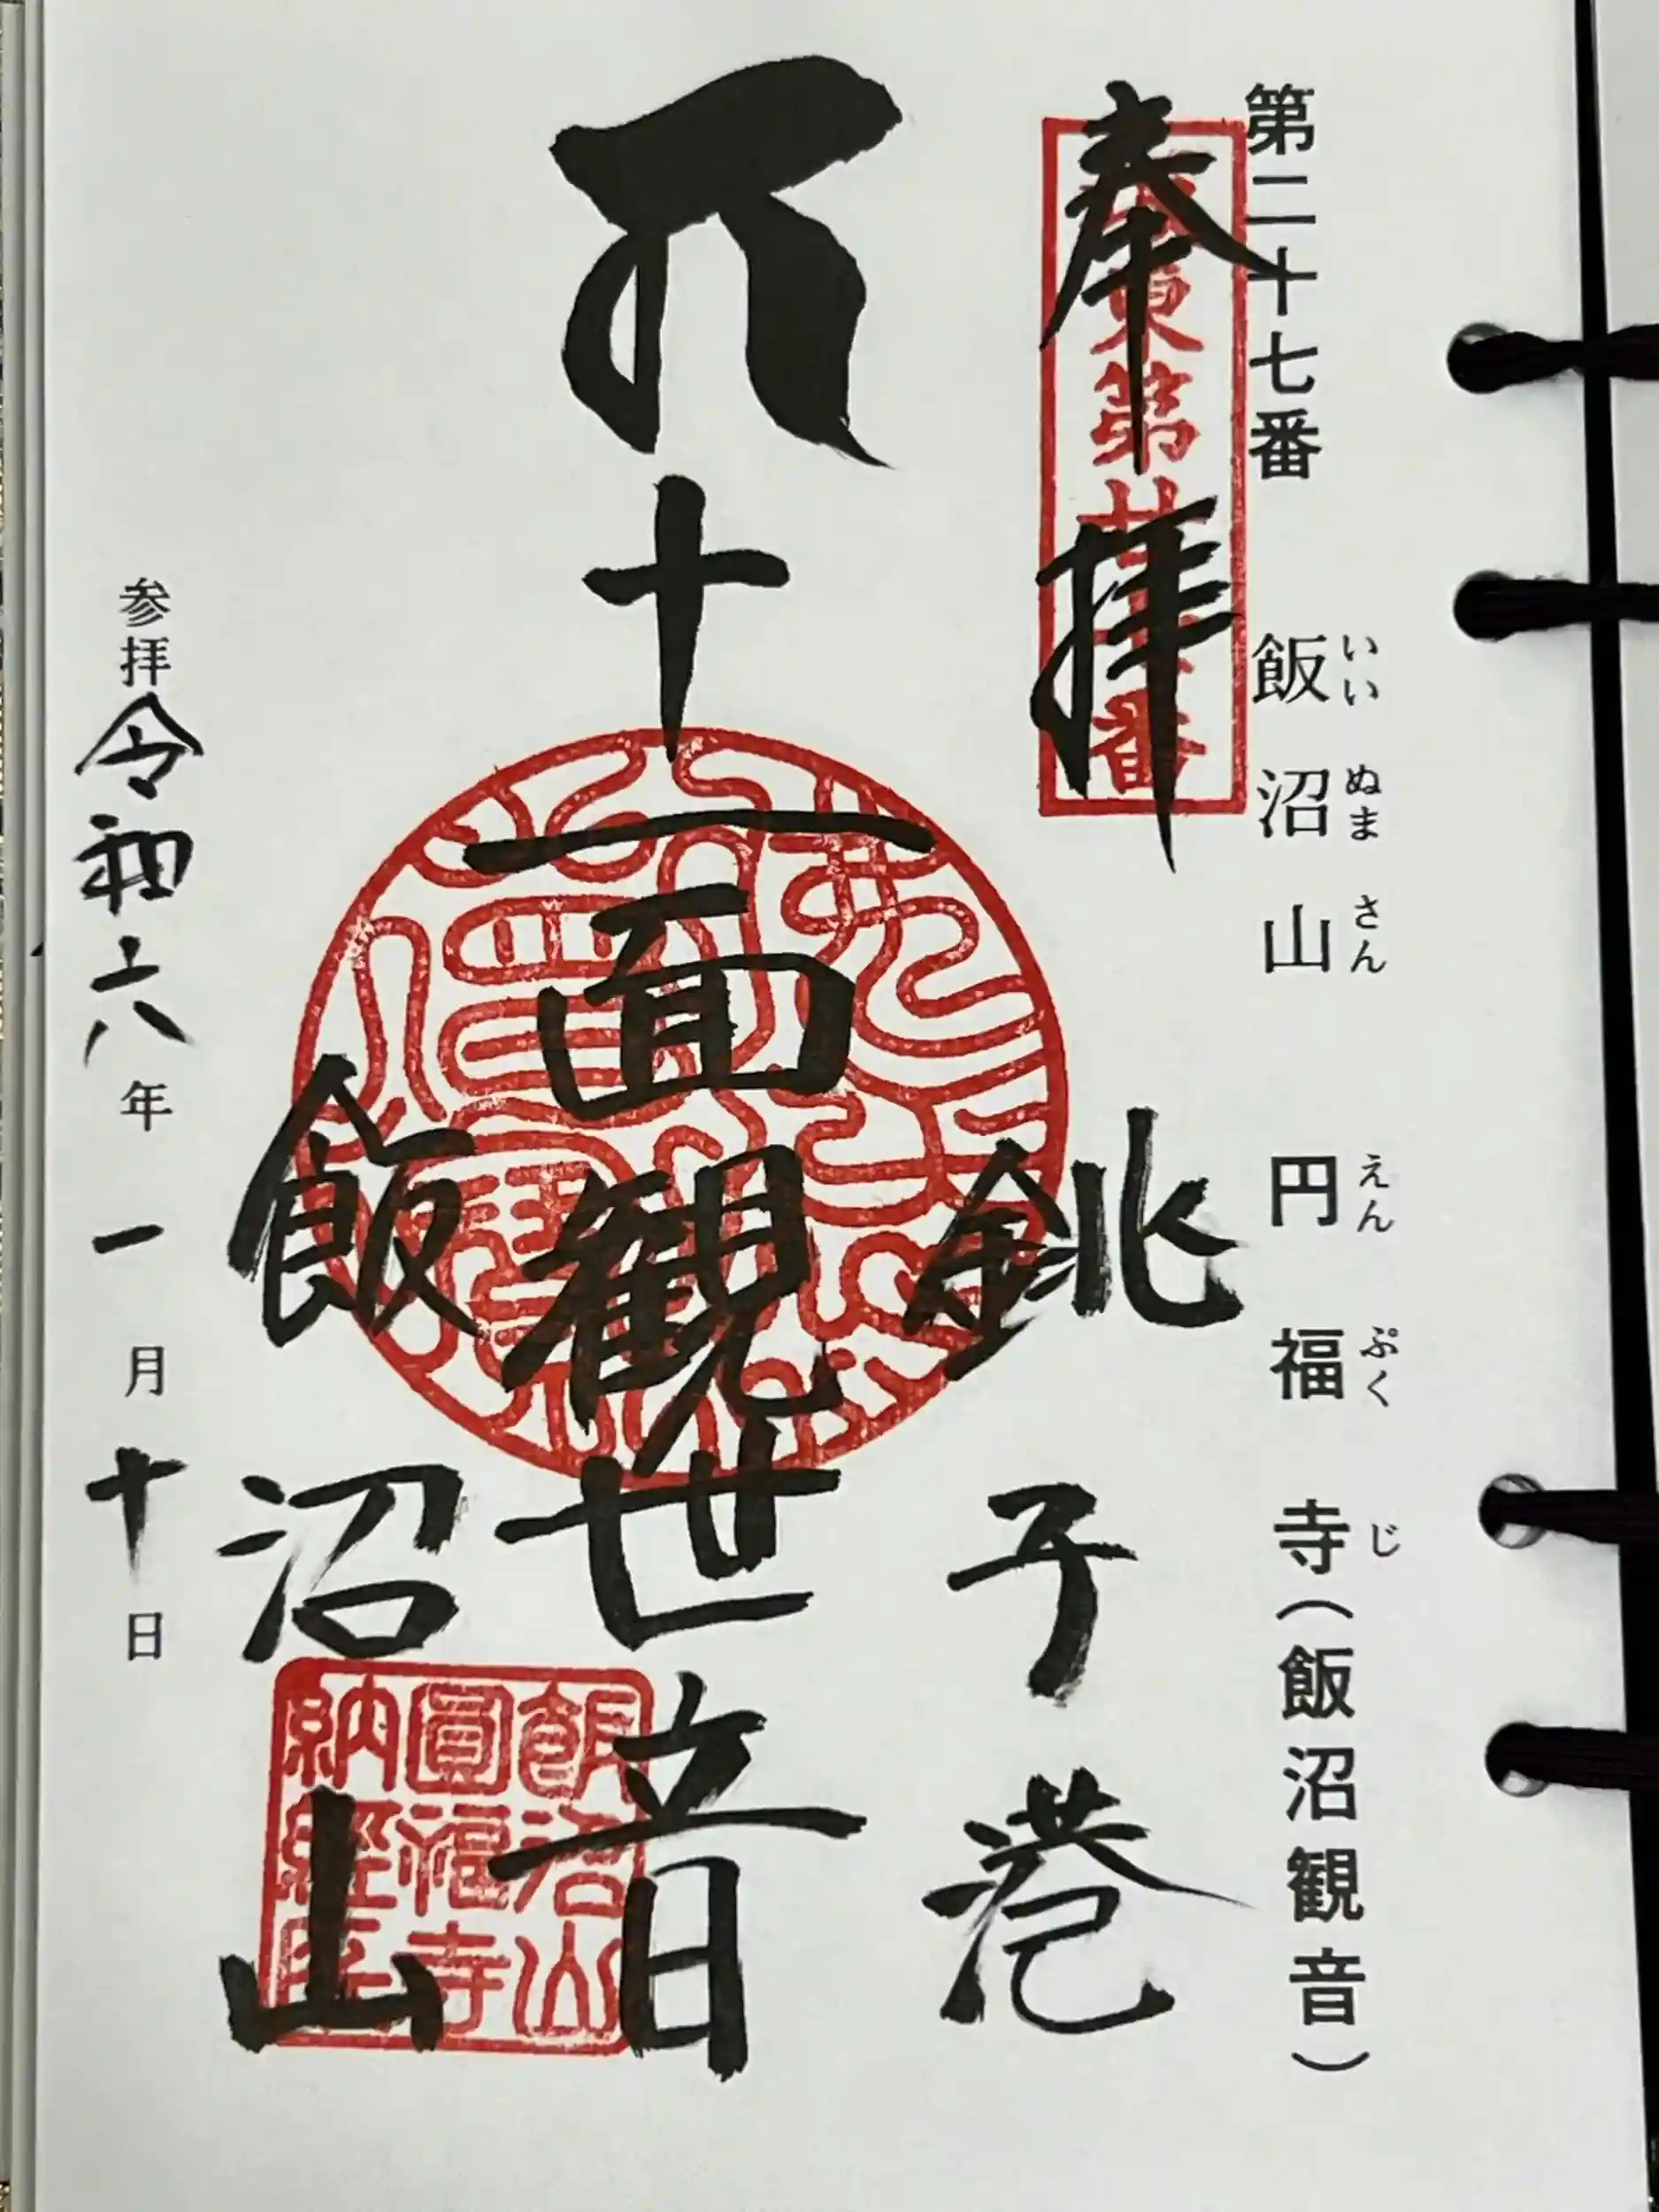 いいぬまさん えんぷくじ
第二十七番 飯沼山 円福寺(飯沼観音)
奉拝
坂東第廿七番
銚子港
十一面観世音
飯沼山
飯沼山
圓福寺
納経所
参拝令和六年一月十日